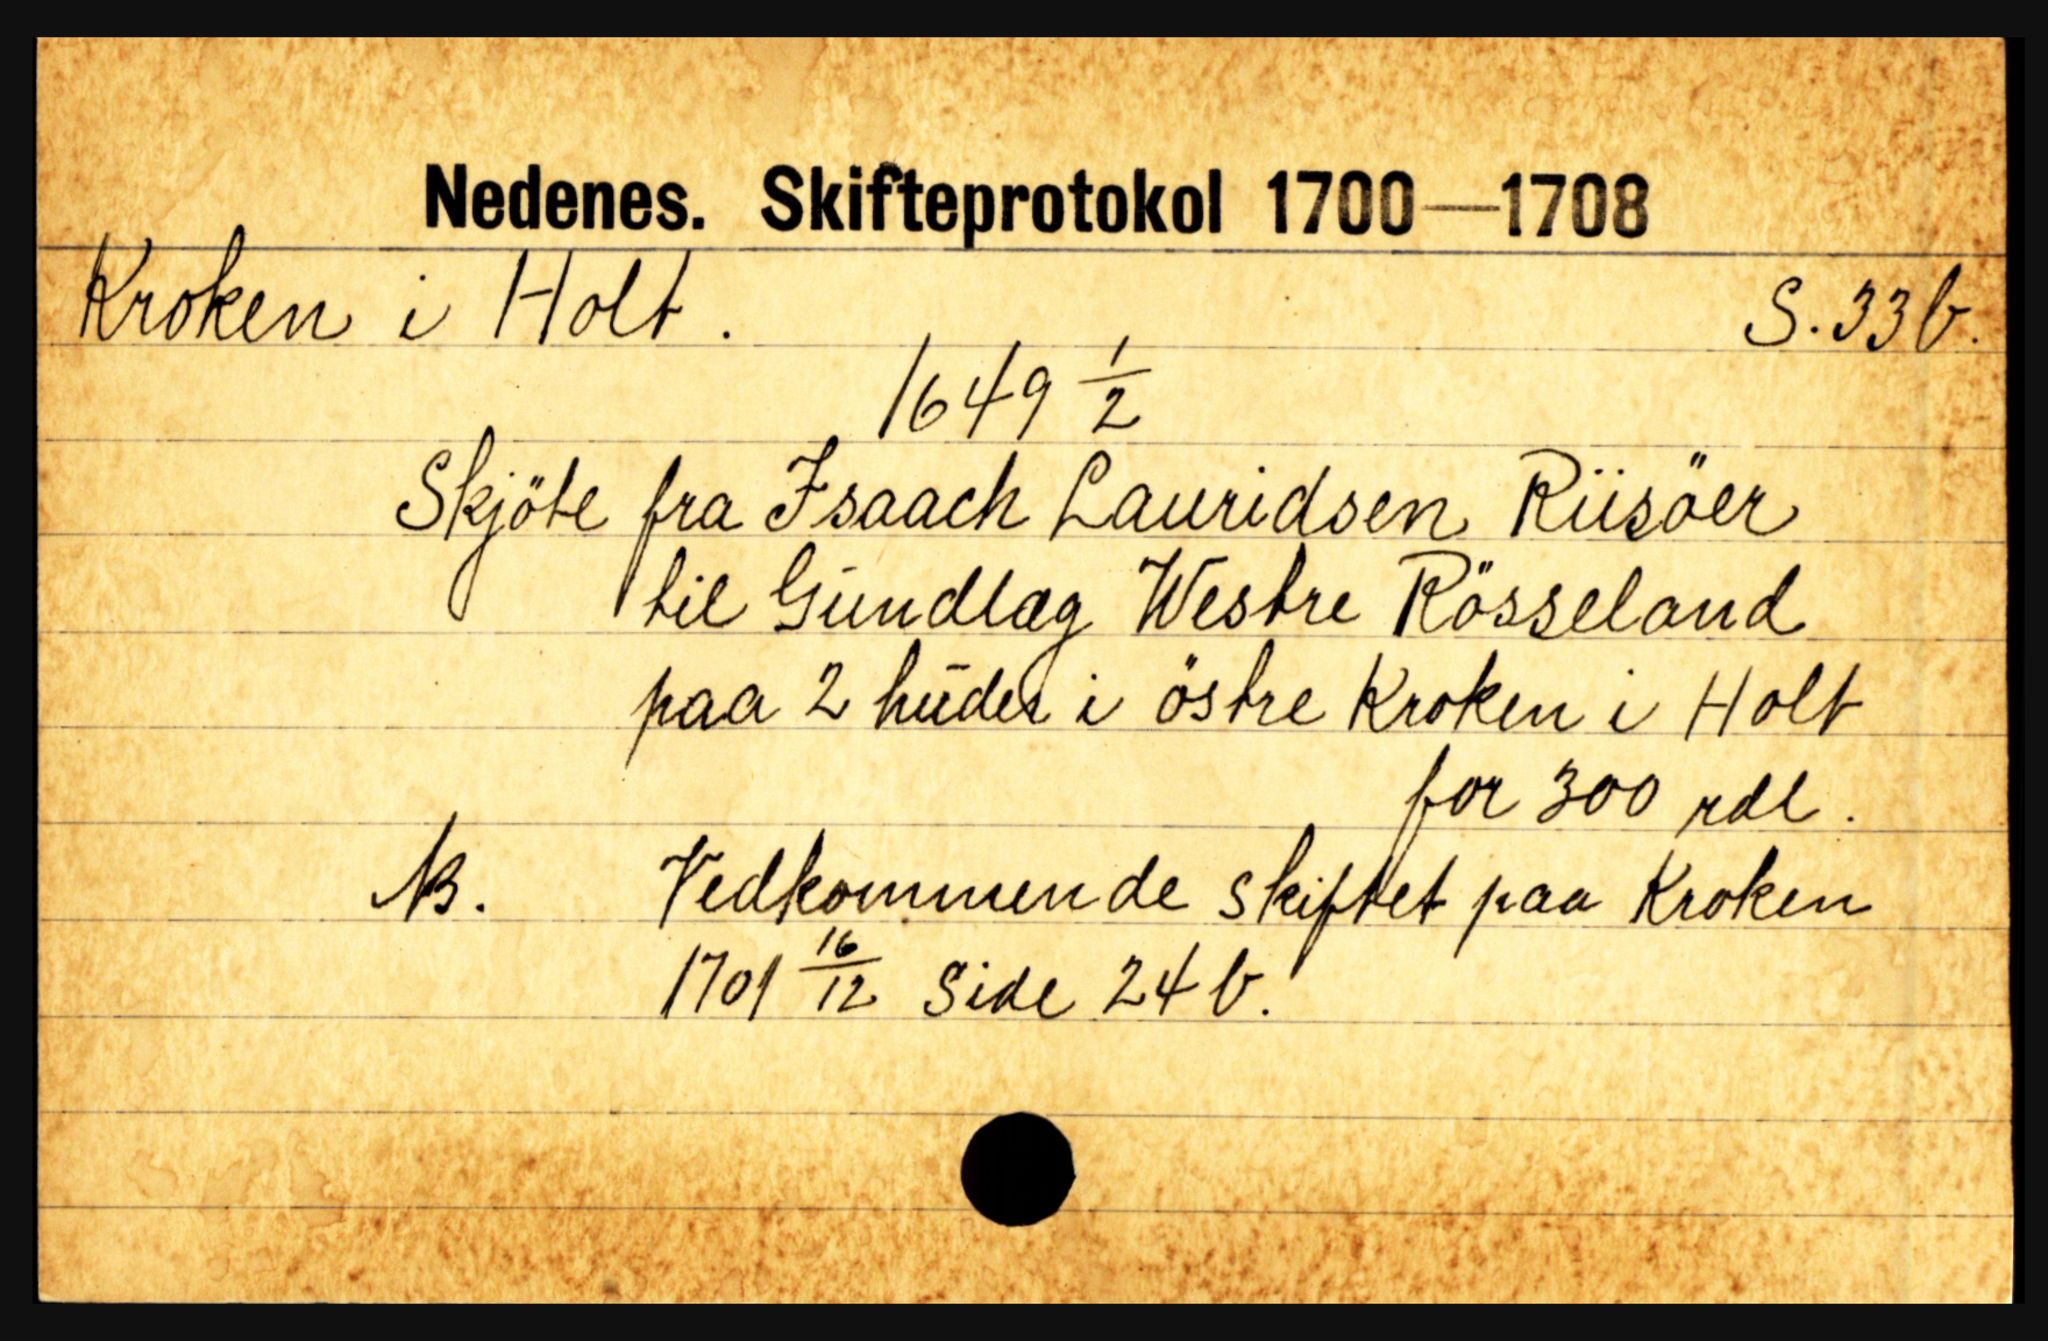 Nedenes. Skifteprotokol 1700—1708
Kroken i Holt. S. 33 b.
1649 1/2
Skjöte fra Isaach Lauridsen Riisöer
til Gundlag Westre Rösseland
paa 2 huder i östre Kroken i Holt
for 300 rdl.
NB. Vedkommende skiftet paa Kroken
1701 16/12 Side 24 b.